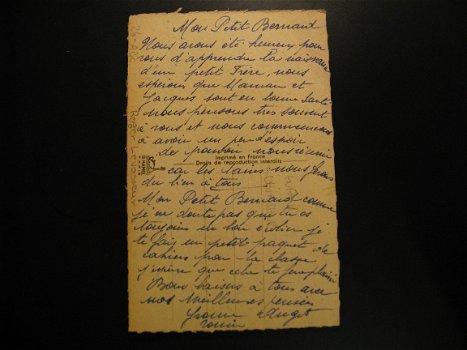 Mon Petit Bernard
Nous avons été heureux pour
vous d'apprendre la naissance
d'un petit Frère, nous
espérons que Maman et
Jacques sont en bonne santé
nous pensons très souvent
à vous et nous commençons
à avoir un peu d'espoir
de pouvoir nous réunir
Imprimé en France
Droits de reproduction interdits
car les dans nous
du bien à tous
Mon Petit Bernard comme
je ne doute pas que tu es
toujours un bon écolier je
te fais un petit paquet de
cahiers pour la classe
j'espère que cela te fera plaisir
Bons baisers à tous avec
nos meilleures pensées